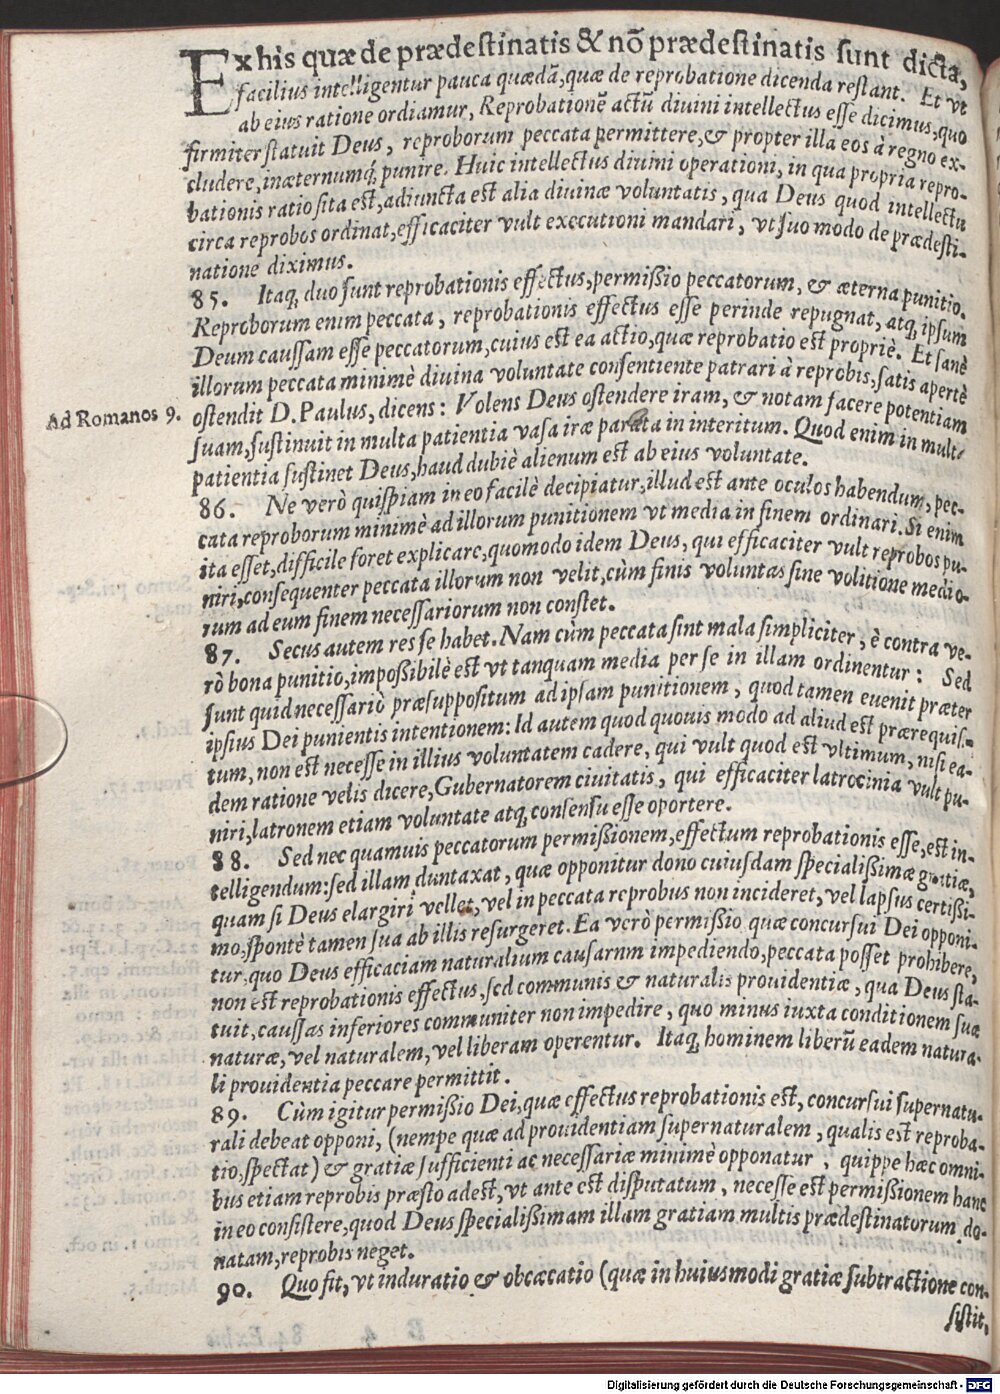 Ex his quæ de prædestinatis & nõ prædestinatis sunt dicta,
facilius intelligentur pauca quædã, quæ de reprobatione dicenda restant. Et vt
ab eius ratione ordiamur, Reprobationē actū diuini intellectus esse dicimus, quo
firmiter statuit Deus, reproborum peccata permittere, & propter illa eos à regno ex-
cludere, inæternumq́; punire. Huic intellectus diuini operationi, in qua propria repro-
bationis ratio sita est, adiuncta est alia diuinæ voluntatis, qua Deus quod intellectu
circa reprobos ordinat, efficaciter vult executioni mandari, vt suo modo de prædesti-
natione diximus.
85. Itaq; duo sunt reprobationis effectus, permißio peccatorum, & æterna punitio.
Reproborum enim peccata, reprobationis effectus esse perinde repugnat, atq; ipsum
Deum caussam esse peccatorum, cuius est ea actio, quæ reprobatio est propriè. Et sanè
illorum peccata minimè diuina voluntate consentiente patrari à reprobis, satis apertè
Ad Romanos 9.
ostendit D. Paulus, dicens: Volens Deus ostendere iram, & notam facere potentiam
suam, sustinuit in multa patientia vasa iræ parata in interitum. Quod enim in multa
patientia sustinet Deus, haud dubiè alienum est ab eius voluntate.
86. Ne verò quispiam in eo facilè decipiatur, illud est ante oculos habendum, pec-
cata reproborum minimè ad illorum punitionem vt media in finem ordinari. Si enim
ita esset, difficile foret explicare, quomodo idem Deus, qui efficaciter vult reprobos pu-
niri, consequenter peccata illorum non velit, cùm finis voluntas sine volitione medio-
rum ad eum finem necessariorum non constet.
87. Secus autem res se habet. Nam cùm peccata sint mala simpliciter, è contra ve-
rò bona punitio, impoßibilè est vt tanquam media per se in illam ordinentur: Sed
sunt quid necessariò præsuppositum ad ipsam punitionem, quod tamen euenit præter
ipsius Dei punientis intentionem: Id autem quod quouis modo ad aliud est prærequisi-
tum, non est necesse in illius voluntatem cadere, qui vult quod est vltimum, nisi ea-
dem ratione velis dicere, Gubernatorem ciuitatis, qui efficaciter latrocinia vult pu-
niri, latronem etiam voluntate atq; consensu esse oportere.
88. Sed nec quamuis peccatorum permißionem, effectum reprobationis esse, est in-
telligendum: sed illam duntaxat, quæ opponitur dono cuiusdam specialißimæ gratiæ,
quam si Deus elargiri vellet, vel in peccata reprobus non incideret, vel lapsus certißi-
mo, spontè tamen sua ab illis resurgeret. Ea verò permißio quæ concursui Dei opponi-
tur, quo Deus efficaciam naturalium causarum impediendo, peccata posset prohibere,
non est reprobationis effectus, sed communis & naturalis prouidentiæ, qua Deus sta-
tuit, caussas inferiores communiter non impedire, quo minus iuxta conditionem suæ
naturæ, vel naturalem, vel liberam operentur. Itaq; hominem liberũ eadem natura-
li prouidentia peccare permittit.
89. Cùm igitur permißio Dei, quæ effectus reprobationis est, concursui supernatu-
rali debeat opponi, (nempe quæ ad prouidentiam supernaturalem, qualis est reproba-
tio, spectat) & gratiæ sufficienti ac necessariæ minimè opponatur, quippe hæc omni-
bus etiam reprobis præsto adest, vt ante est disputatum, necesse est permißionem hanc
in eo consistere, quod Deus specialißimam illam gratiam multis prædestinatorum do-
natam, reprobis neget.
90. Quo fit, vt induratio & obcæcatio (quæ in huiusmodi gratiæ subtractione con-
sistit,
Digitalisierung gefördert durch die Deutsche Forschungsgemeinschaft - DFG